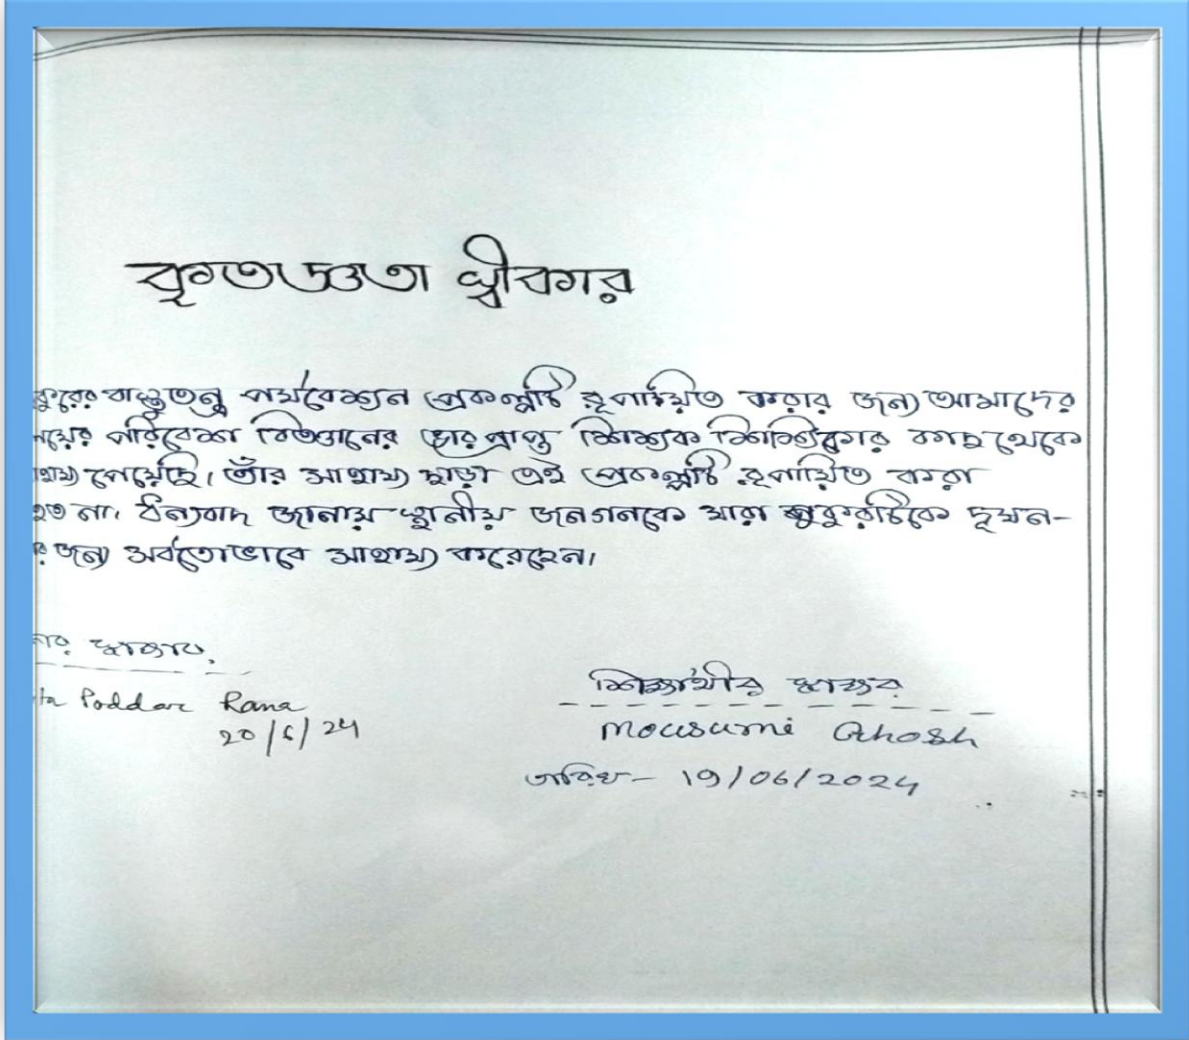 কৃতজ্ঞতা স্বীকার
কুরের বাস্তুতন্ত্র পর্যবেক্ষন প্রকল্পটি রূপায়িত করার জন্য আমাদের
লয়ের পরিবেশ বিজ্ঞানের ভার প্রাপ্ত শিক্ষক শিক্ষিকার কাছ থেকে
হায্য পেয়েছি। তাঁর সাহায্য ছাড়া এই প্রকল্পটি রূপায়িত করা
হত না। ধন্যবাদ জানায় স্থানীয় জনগনকে যারা পুকুরটিকে দূষন-
র জন্য সর্বতোভাবে সাহায্য করেছেন।
শিক্ষার্থীর স্বাক্ষর
ta Poddar Rana
Mousumi Ghosh
20/6/24
তারিখ - 19/06/2024